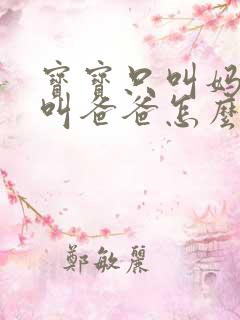 寶寶只叫媽
叫爸爸怎麼
鄭敏麗